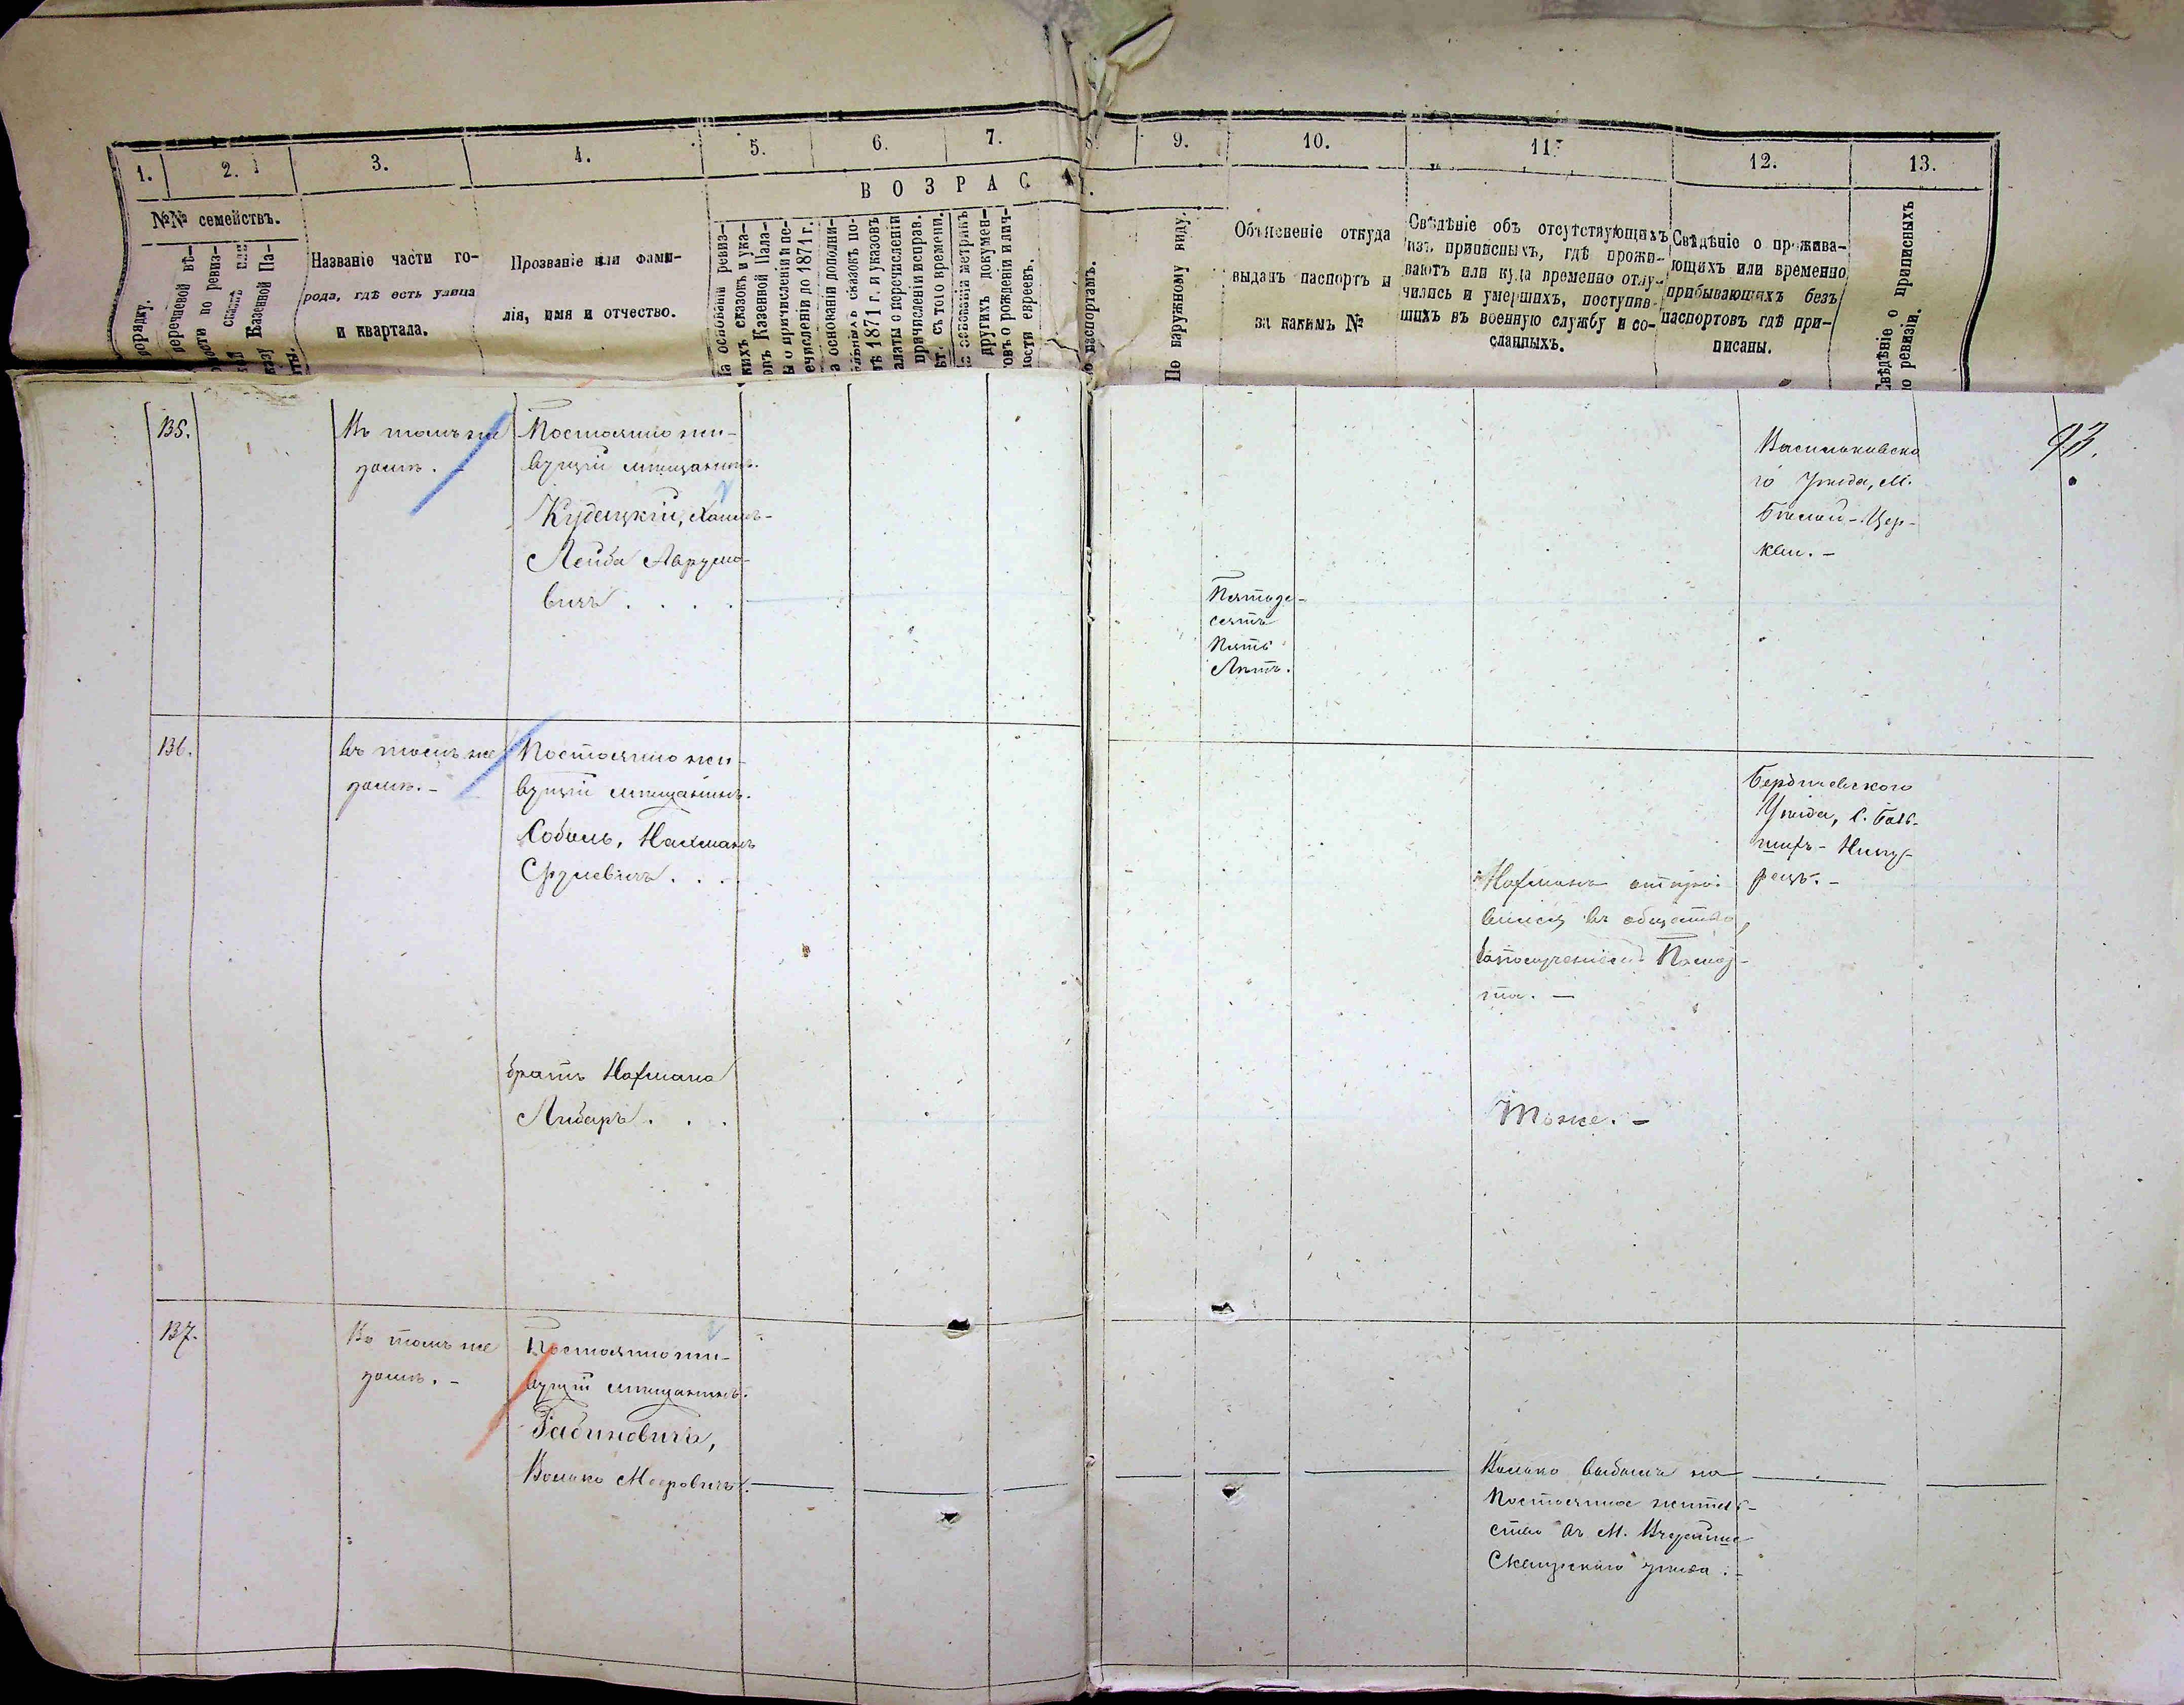 1.
2.
3.
4.
5.
6.
7.
9.
10.
11.
12.
13.
ВОЗРАСТ.
№№ семействъ.
порядку.
перечневой вѣ-
Казенной Па-
Названіе части го-
рода, гдѣ есть улица
и квартала.
Прозваніе или фами-
лія, имя и отчество.
На основаніи ревиз-
кихъ сказокъ и ука-
овъ Казенной Пала-
ы о причисленіи и пе-
ечисленіи до 1871 г.
а основаніи дополни-
сказокъ по-
тѣ 1871 г. и указовъ
алаты о перечисленіи
причисленіи исправ.
съ того времени.
основаніи метрикъ
другихъ докумен-
овъ о рожденіи и лич-
ности евреевъ.
паспортамъ.
По наружному виду.
Объясненіе откуда
выданъ паспортъ и
за какимъ №
Свѣдѣніе объ отсутствующихъ
изъ приписныхъ, гдѣ прожи-
ваютъ или куда временно отлу-
чились и умершихъ, поступив-
шихъ въ военную службу и со-
сланныхъ.
Свѣдѣніе о прожива-
ющихъ или временно
прибывающихъ безъ
паспортовъ гдѣ при-
писаны.
Свѣдѣніе о приписныхъ
по ревизіи.
93.
135.
Въ томъ же
домѣ. -
Постоянно жи-
вущій мѣщанинъ.
Кудецкій, Хаимъ-
Лейба Аврумо-
вичъ . . . .
Пятьде-
сятъ
пять
Лѣтъ.
Васильковска
го Уѣзда, М.
Бѣлой-Цер-
кви. -
136.
Въ томъ же
домѣ. -
Постоянно жи-
вущій мѣщанинъ.
Соболь, Нахманъ
Сруlевичъ . . .
Нахманъ отпра-
вился въ общество,
Бердичевского
Уѣзда, С.
братъ Нахмана
Либеръ . . .
Тоже. -
137.
Въ томъ же
домѣ. -
Постоянно жи-
вущій мѣщанинъ.
Рабиновичъ,
Волько Мееровичъ.
Волько выбылъ на
постоянное житель-
ство въ М. Вчерайше
Сквирскаго уѣзда. -